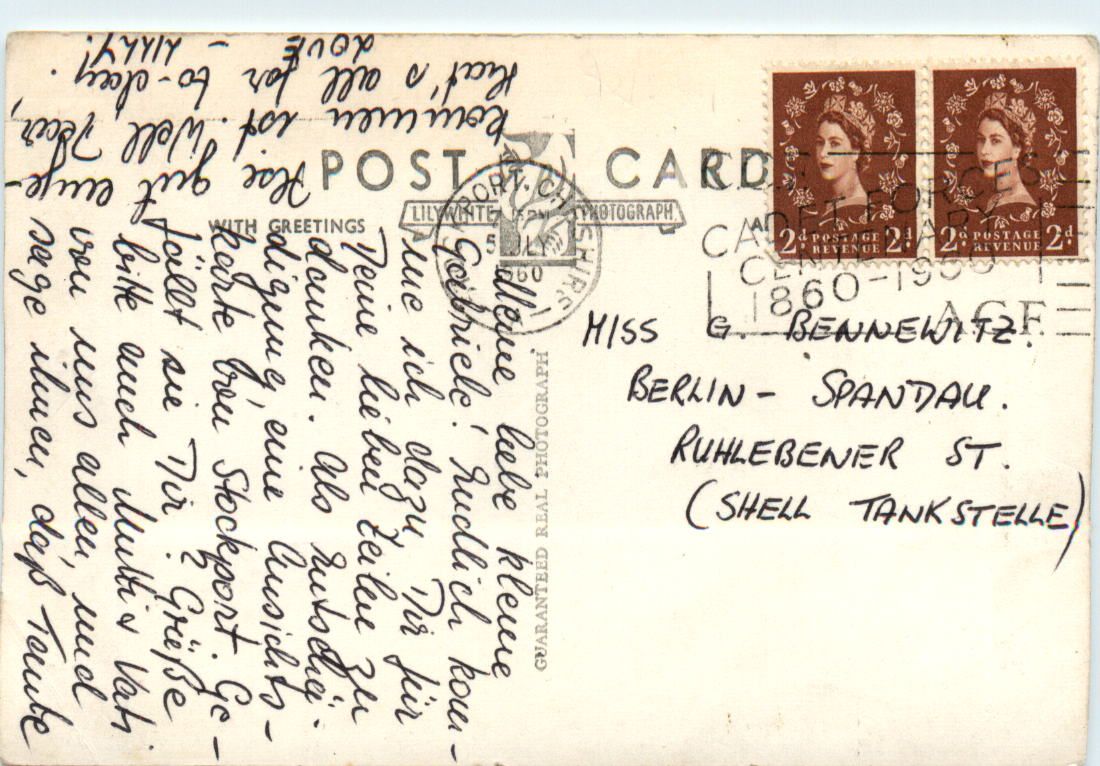 POST CARD
WITH GREETINGS
LILYWHITE PHOTOGRAPH
STOCKPORT-CHESHIRE
15 PM
5 JLY
1960
CADET FORCES
CENTENARY
1860-1960
A.C.F.
2d POSTAGE REVENUE 2d
2d POSTAGE REVENUE 2d
GUARANTEED REAL PHOTOGRAPH
MISS G. BENNEWITZ.
BERLIN - SPANDAU.
RUHLEBENER ST.
(SHELL TANKSTELLE)
Meine liebe kleine
Gabriele! Endlich kom-
me ich dazu, Dir für
Deine lieben Zeilen zu
danken. Als Entschä-
digung, eine Ansichts-
karte von Stockport. Ge-
fällt sie Dir? Grüße
bitte auch Mutti & Vati
von uns allen, und
sage ihnen, daß Tante
Ilse gut ange-
kommen ist. Well
that's all for to-day.
LOVE -